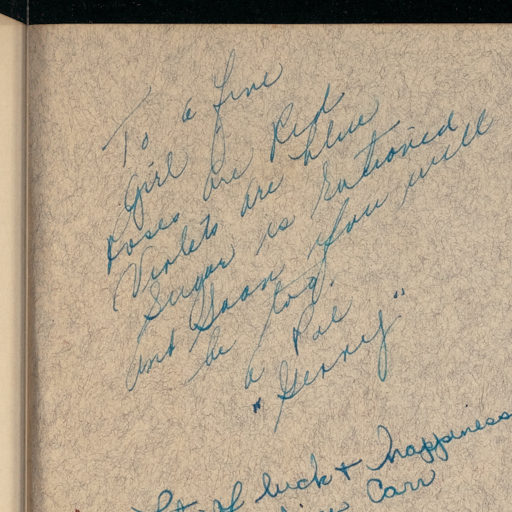 To a fine
Girl
Roses are Red
Violets are blue
Sugar is Rationed
and Soon you will
be too.
a Pal
"Gerry"
of luck + happiness
Carr